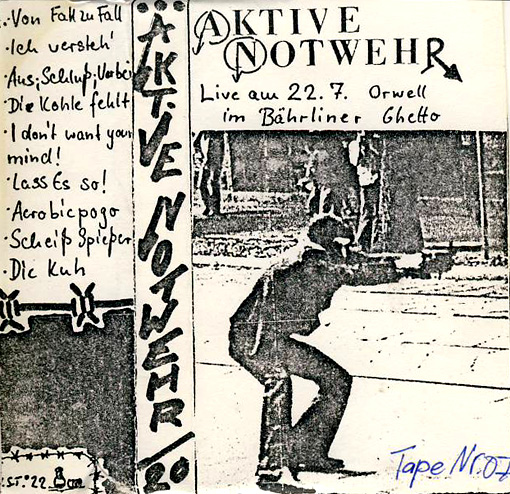 Von Fall zu Fall
Ich versteh'
Aus; Schluß; Vorbei
Die Kohle fehlt
I don't want your
mind!
Lass Es so!
Aerobicpogo
Scheiß Spießer
Die Kuh
ÄKTIVE NOTWEHR/20
AKTIVE
NOTWEHR
Live am 22.7. Orwell
im Bährliner Ghetto
Tape Nr.07